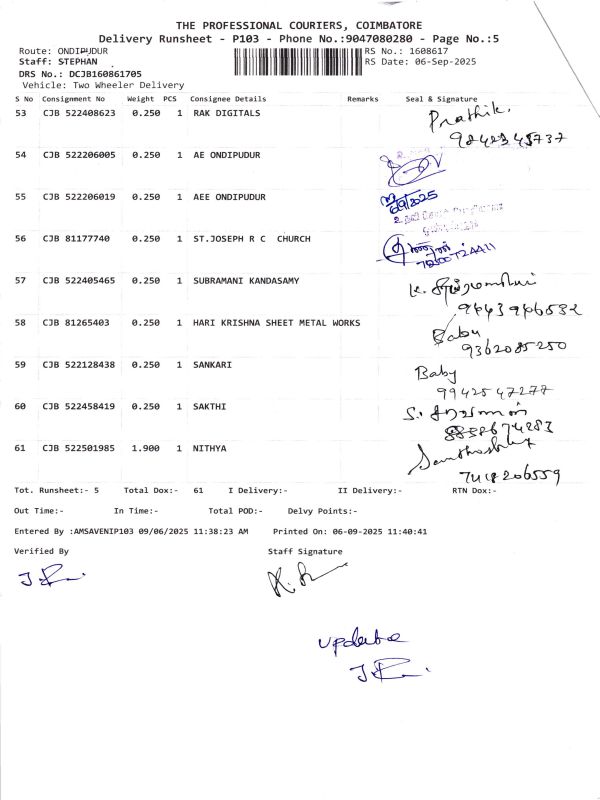 THE PROFESSIONAL COURIERS, COIMBATORE
Delivery Runsheet - P103 - Phone No.:9047080280 - Page No.:5
Route: ONDIPUDUR RS No.: 1608617
Staff: STEPHAN RS Date: 06-Sep-2025
DRS No.: DCJB160861705
Vehicle: Two Wheeler Delivery
S No Consignment No Weight PCS Consignee Details Remarks Seal & Signature
53 CJB 522408623 0.250 1 RAK DIGITALS Prathik.
54 CJB 522206005 0.250 1 AE ONDIPUDUR
55 CJB 522206019 0.250 1 AEE ONDIPUDUR
6/9/2025
56 CJB 81177740 0.250 1 ST.JOSEPH R C CHURCH
57 CJB 522405465 0.250 1 SUBRAMANI KANDASAMY
9443946532
58 CJB 81265403 0.250 1 HARI KRISHNA SHEET METAL WORKS Babu
9362085250
59 CJB 522128438 0.250 1 SANKARI Baby
9942547277
60 CJB 522458419 0.250 1 SAKTHI S. சரவணன்
61 CJB 522501985 1.900 1 NITHYA
7418206559
Tot. Runsheet:- 5 Total Dox:- 61 I Delivery:- II Delivery:- RTN Dox:-
Out Time:- In Time:- Total POD:- Delvy Points:-
Entered By :AMSAVENIP103 09/06/2025 11:38:23 AM Printed On: 06-09-2025 11:40:41
Verified By Staff Signature
update